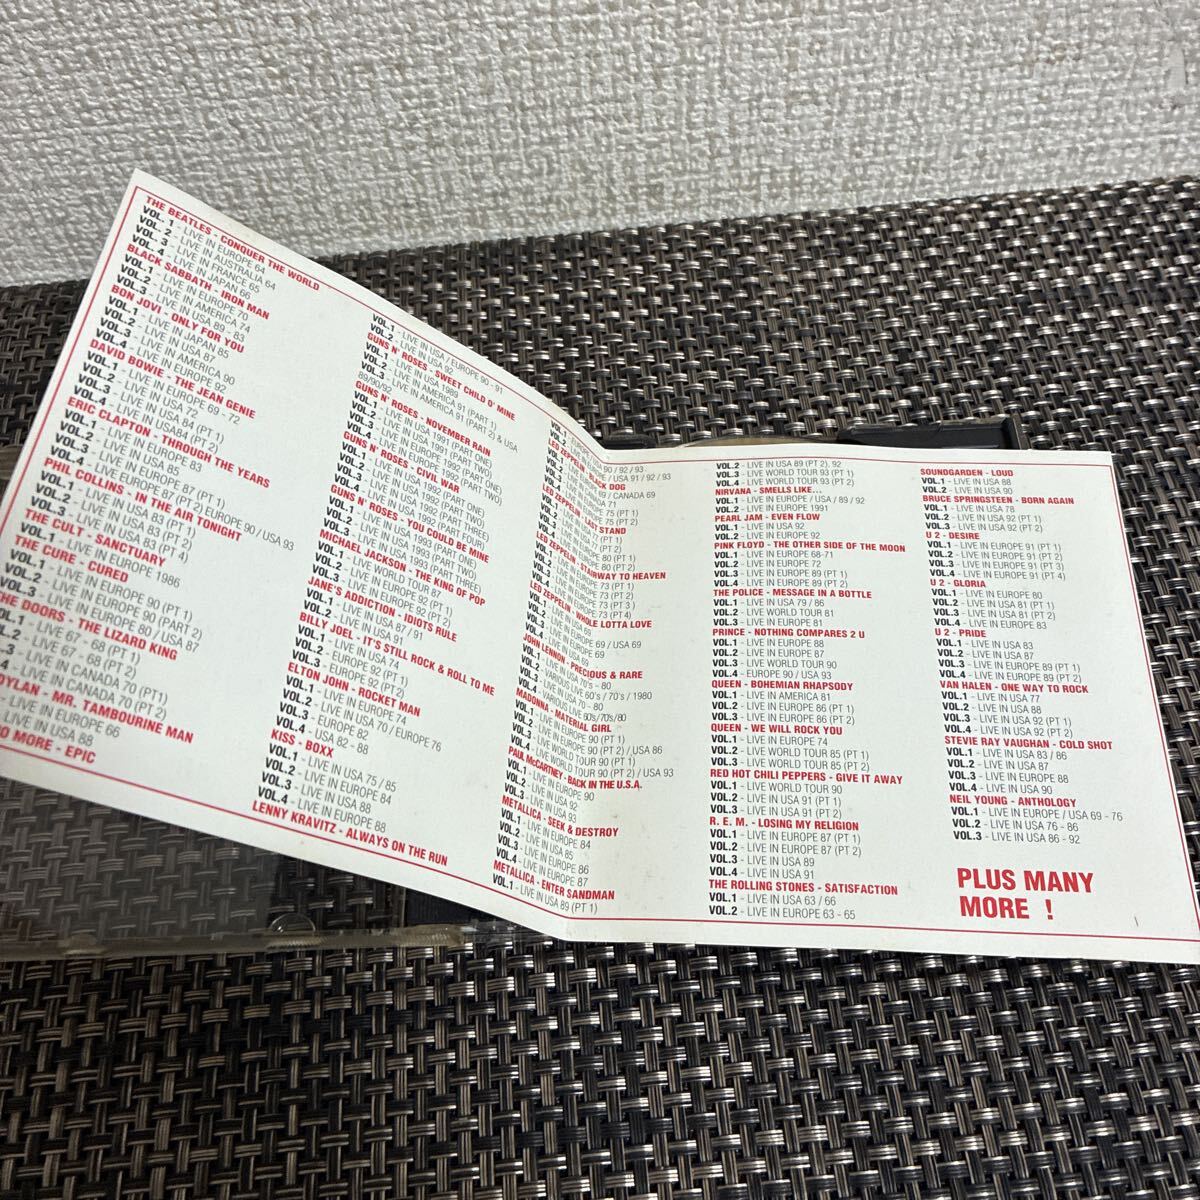 THE BEATLES - CONQUER THE WORLD
VOL. 1 - LIVE IN EUROPE 64
VOL. 2 - LIVE IN AUSTRALIA 64
VOL. 3 - LIVE IN FRANCE 65
VOL. 4 - LIVE IN JAPAN 66
BLACK SABBATH - IRON MAN
VOL.1 - LIVE IN EUROPE 70
VOL.2 - LIVE IN AMERICA 74
VOL.3 - LIVE IN USA 89 - 83
BON JOVI - ONLY FOR YOU
VOL.1 - LIVE IN JAPAN 85
VOL.2 - LIVE IN USA 87
VOL.3 - LIVE IN AMERICA 90
VOL.4 - LIVE IN EUROPE 92
DAVID BOWIE - THE JEAN GENIE
VOL.1 - LIVE IN EUROPE 69 - 72
VOL.2 - LIVE IN USA 72
VOL.3 - LIVE IN USA 84 (PT 1)
VOL.4 - LIVE IN USA84 (PT 2)
ERIC CLAPTON - THROUGH THE YEARS
VOL.1 - LIVE IN EUROPE 83
VOL.2 - LIVE IN USA 85
VOL.3 - LIVE IN EUROPE 87 (PT 1)
VOL.4 - LIVE IN EUROPE 87 (PT 2) EUROPE 90 / USA 93
PHIL COLLINS - IN THE AIR TONIGHT
VOL.1 - LIVE IN USA 83 (PT 1)
VOL.2 - LIVE IN USA 83 (PT 2)
VOL.3 - LIVE IN USA 83 (PT 4)
THE CULT - SANCTUARY
VOL.1 - LIVE IN EUROPE 1986
THE CURE - CURED
VOL.1 - LIVE IN EUROPE 90 (PT 1)
VOL.2 - LIVE IN EUROPE 90 (PART 2)
VOL.3 - LIVE IN EUROPE 80 / USA 87
THE DOORS - THE LIZARD KING
VOL.1 - LIVE 67 - 68 (PT 1)
VOL.2 - LIVE 67 - 68 (PT 2)
LIVE IN CANADA 70 (PT1)
LIVE IN CANADA 70 (PT 2)
DYLAN - MR. TAMBOURINE MAN
LIVE IN EUROPE 66
LIVE IN USA 88
NO MORE - EPIC
VOL.1 - LIVE IN USA / EUROPE 90 - 91
VOL.2 - LIVE IN USA 92
GUNS N' ROSES - SWEET CHILD O' MINE
VOL.1 - LIVE IN USA 1989
VOL.2 - LIVE IN AMERICA 91 (PART 1)
VOL.3 - LIVE IN AMERICA 91 (PART 2) & USA
89/90/92
GUNS N' ROSES - NOVEMBER RAIN
VOL.1 - LIVE IN USA 1991 (PART ONE)
VOL.2 - LIVE IN USA 1991 (PART TWO)
VOL.3 - LIVE IN EUROPE 1992 (PART ONE)
VOL.4 - LIVE IN EUROPE 1992 (PART TWO)
GUNS N' ROSES - CIVIL WAR
VOL.1 - LIVE IN USA 1992 (PART ONE)
VOL.2 - LIVE IN USA 1992 (PART TWO)
VOL.3 - LIVE IN USA 1992 (PART THREE)
VOL.4 - LIVE IN USA 1992 (PART FOUR)
GUNS N' ROSES - YOU COULD BE MINE
VOL.1 - LIVE IN USA 1993 (PART ONE)
VOL.2 - LIVE IN USA 1993 (PART TWO)
VOL.3 - LIVE IN USA 1993 (PART THREE)
MICHAEL JACKSON - THE KING OF POP
VOL.1 - LIVE WORLD TOUR 87
VOL.2 - LIVE IN EUROPE 92 (PT 1)
VOL.3 - LIVE IN EUROPE 92 (PT 2)
JANE'S ADDICTION - IDIOTS RULE
VOL.1 - LIVE IN USA 87 / 91
VOL.2 - LIVE IN USA 91
BILLY JOEL - IT'S STILL ROCK & ROLL TO ME
VOL.1 - LIVE IN USA 74
VOL.2 - EUROPE 92 (PT 1)
VOL.3 - EUROPE 92 (PT 2)
ELTON JOHN - ROCKET MAN
VOL.1 - LIVE IN EUROPE 74
VOL.2 - LIVE IN USA 70 / EUROPE 76
VOL.3 - EUROPE 82
VOL.4 - USA 82 - 88
KISS - BOXX
VOL.1 - LIVE IN USA 75 / 85
VOL.2 - LIVE IN EUROPE 84
VOL.3 - LIVE IN USA 88
VOL.4 - LIVE IN EUROPE 88
LENNY KRAVITZ - ALWAYS ON THE RUN
VOL.1 - EUROPE/USA 90 / 92 / 93
VOL.2 - EUROPE / USA 91 / 92 / 93
LED ZEPPELIN - BLACK DOG
LED ZEPPELIN - LAST STAND
LED ZEPPELIN - STAIRWAY TO HEAVEN
LED ZEPPELIN - WHOLE LOTTA LOVE
JOHN LENNON - PRECIOUS & RARE
VOL.1 - LIVE IN USA 70'S - 80
VOL.2 - VARIOUS LIVE 60's / 70's / 1980
VOL.3 - LIVE IN USA 70 - 80
VOL.4 - VARIOUS LIVE 60's/70's/80
MADONNA - MATERIAL GIRL
VOL.1 - LIVE IN EUROPE 90 (PT 1)
VOL.2 - LIVE IN EUROPE 90 (PT 2) / USA 86
VOL.3 - LIVE WORLD TOUR 90 (PT 1)
VOL.4 - LIVE WORLD TOUR 90 (PT 2) / USA 93
PAUL McCARTNEY - BACK IN THE U.S.A.
VOL.1 - LIVE IN EUROPE 90
VOL.2 - LIVE IN USA 92
VOL.3 - LIVE IN USA 93
METALLICA - SEEK & DESTROY
VOL.1 - LIVE IN EUROPE 84
VOL.2 - LIVE IN USA 85
VOL.3 - LIVE IN EUROPE 86
VOL.4 - LIVE IN EUROPE 87
METALLICA - ENTER SANDMAN
VOL.1 - LIVE IN USA 89 (PT 1)
VOL.2 - LIVE IN USA 89 (PT 2), 92
VOL.3 - LIVE WORLD TOUR 93 (PT 1)
VOL.4 - LIVE WORLD TOUR 93 (PT 2)
NIRVANA - SMELLS LIKE...
VOL.1 - LIVE IN EUROPE / USA / 89 / 92
VOL.2 - LIVE IN EUROPE 1991
PEARL JAM - EVEN FLOW
VOL.1 - LIVE IN USA 92
VOL.2 - LIVE IN EUROPE 92
PINK FLOYD - THE OTHER SIDE OF THE MOON
VOL.1 - LIVE IN EUROPE 68-71
VOL.2 - LIVE IN EUROPE 72
VOL.3 - LIVE IN EUROPE 89 (PT 1)
VOL.4 - LIVE IN EUROPE 89 (PT 2)
THE POLICE - MESSAGE IN A BOTTLE
VOL.1 - LIVE IN USA 79 / 86
VOL.2 - LIVE WORLD TOUR 81
VOL.3 - LIVE IN EUROPE 81
PRINCE - NOTHING COMPARES 2 U
VOL.1 - LIVE IN EUROPE 88
VOL.2 - LIVE IN EUROPE 87
VOL.3 - LIVE WORLD TOUR 90
VOL.4 - EUROPE 90 / USA 93
QUEEN - BOHEMIAN RHAPSODY
VOL.1 - LIVE IN AMERICA 81
VOL.2 - LIVE IN EUROPE 86 (PT 1)
VOL.3 - LIVE IN EUROPE 86 (PT 2)
QUEEN - WE WILL ROCK YOU
VOL.1 - LIVE IN EUROPE 74
VOL.2 - LIVE WORLD TOUR 85 (PT 1)
VOL.3 - LIVE WORLD TOUR 85 (PT 2)
RED HOT CHILI PEPPERS - GIVE IT AWAY
VOL.1 - LIVE WORLD TOUR 90
VOL.2 - LIVE IN USA 91 (PT 1)
VOL.3 - LIVE IN USA 91 (PT 2)
R. E. M. - LOSING MY RELIGION
VOL.1 - LIVE IN EUROPE 87 (PT 1)
VOL.2 - LIVE IN EUROPE 87 (PT 2)
VOL.3 - LIVE IN USA 89
VOL.4 - LIVE IN USA 91
THE ROLLING STONES - SATISFACTION
VOL.1 - LIVE IN USA 63 / 66
VOL.2 - LIVE IN EUROPE 63 - 65
SOUNDGARDEN - LOUD
VOL.1 - LIVE IN USA 88
VOL.2 - LIVE IN USA 90
BRUCE SPRINGSTEEN - BORN AGAIN
VOL.1 - LIVE IN USA 78
VOL.2 - LIVE IN USA 92 (PT 1)
VOL.3 - LIVE IN USA 92 (PT 2)
U 2 - DESIRE
VOL.1 - LIVE IN EUROPE 91 (PT 1)
VOL.2 - LIVE IN EUROPE 91 (PT 2)
VOL.3 - LIVE IN EUROPE 91 (PT 3)
VOL.4 - LIVE EUROPE 91 (PT 4)
U 2 - GLORIA
VOL.1 - LIVE IN EUROPE 80
VOL.2 - LIVE IN USA 81 (PT 1)
VOL.3 - LIVE IN USA 81 (PT 2)
VOL.4 - LIVE IN EUROPE 83
U 2 - PRIDE
VOL.1 - LIVE IN USA 83
VOL.2 - LIVE IN USA 87
VOL.3 - LIVE IN EUROPE 89 (PT 1)
VOL.4 - LIVE IN EUROPE 89 (PT 2)
VAN HALEN - ONE WAY TO ROCK
VOL.1 - LIVE IN USA 77
VOL.2 - LIVE IN USA 88
VOL.3 - LIVE IN USA 92 (PT 1)
VOL.4 - LIVE IN USA 92 (PT 2)
STEVIE RAY VAUGHAN - COLD SHOT
VOL.1 - LIVE IN USA 83 / 86
VOL.2 - LIVE IN USA 87
VOL.3 - LIVE IN EUROPE 88
VOL.4 - LIVE IN USA 90
NEIL YOUNG - ANTHOLOGY
VOL.1 - LIVE IN EUROPE / USA 69 - 76
VOL.2 - LIVE IN USA 76 - 86
VOL.3 - LIVE IN USA 86 - 92
PLUS MANY
MORE !